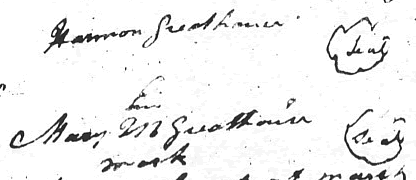 Harmon Greathouse Seal
her
Mary M Greathouse Seal
mark